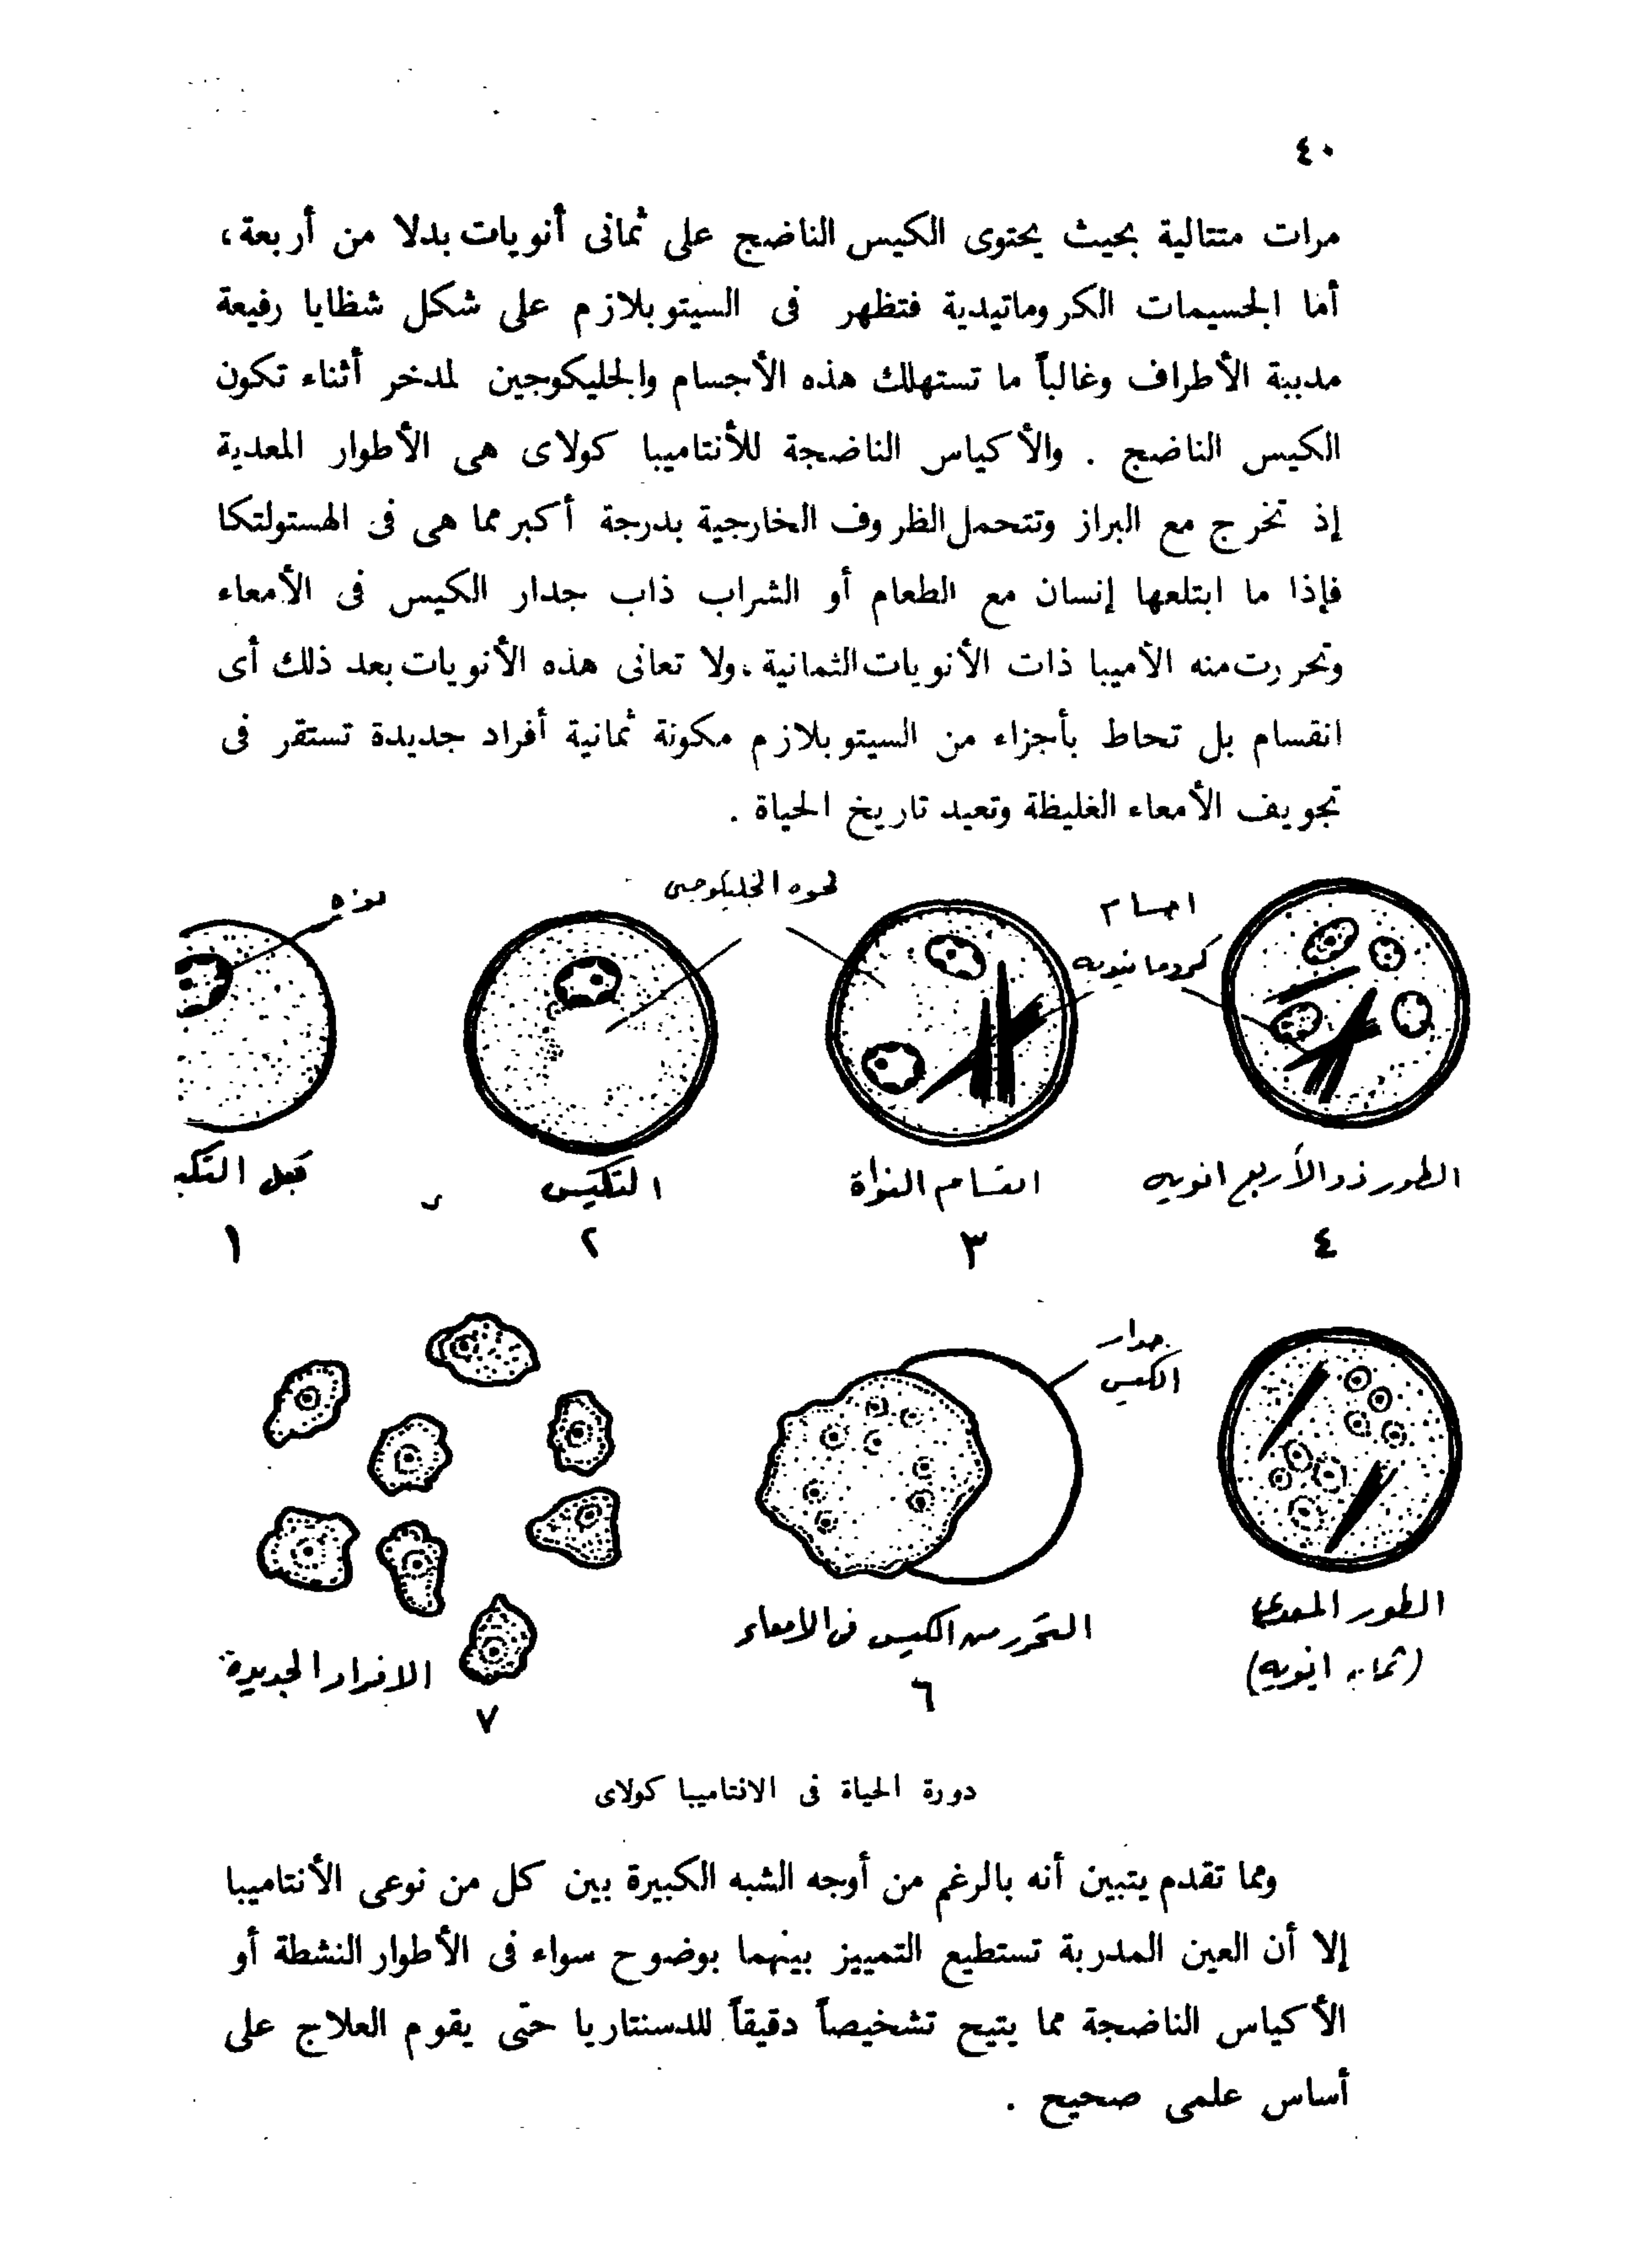 ٤٠
مرات متتالية بحيث يحتوى الكيس الناضج على ثمانى أنويات بدلا من أربعة،
أما الجسيمات الكروماتيدية فتظهر فى السيتوبلازم على شكل شظايا رفيعة
مدببة الأطراف وغالباً ما تستهلك هذه الأجسام والجليكوجين لمدخر أثناء تكون
الكيس الناضج . والأكياس الناضجة للأنتاميبا كولاى هى الأطوار المعدية
إذ تخرج مع البراز وتتحمل الظروف الخارجية بدرجة أكبر مما هى فى الهستولتكا
فإذا ما ابتلعها إنسان مع الطعام أو الشراب ذاب جدار الكيس فى الأمعاء
وتحررت منه الأميبا ذات الأنويات الثمانية ، ولا تعانى هذه الأنويات بعد ذلك أى
انقسام بل تحاط بأجزاء من السيتوبلازم مكونة ثمانية أفراد جديدة تستقر فى
تجويف الأمعاء الغليظة وتعيد تاريخ الحياة .
اجسام
كروماتيديه
فجوه الجليكوجين
نواه
الطور ذو الأربع انويه
انقسام النواة
التكيس
قبل التكيـ
٤
٣
٢
١
جدار
الكيس
الطور المعدى
(ثمان انويه)
التحرر من الكيس فى الامعاء
٦
الافراد الجديدة
٧
دورة الحياة فى الانتاميبا كولاى
ومما تقدم يتبين أنه بالرغم من أوجه الشبه الكبيرة بين كل من نوعى الأنتاميبا
إلا أن العين المدربة تستطيع التمييز بينهما بوضوح سواء فى الأطوار النشطة أو
الأكياس الناضجة مما يتيح تشخيصاً دقيقاً للدسنتاريا حتى يقوم العلاج على
أساس علمى صحيح .